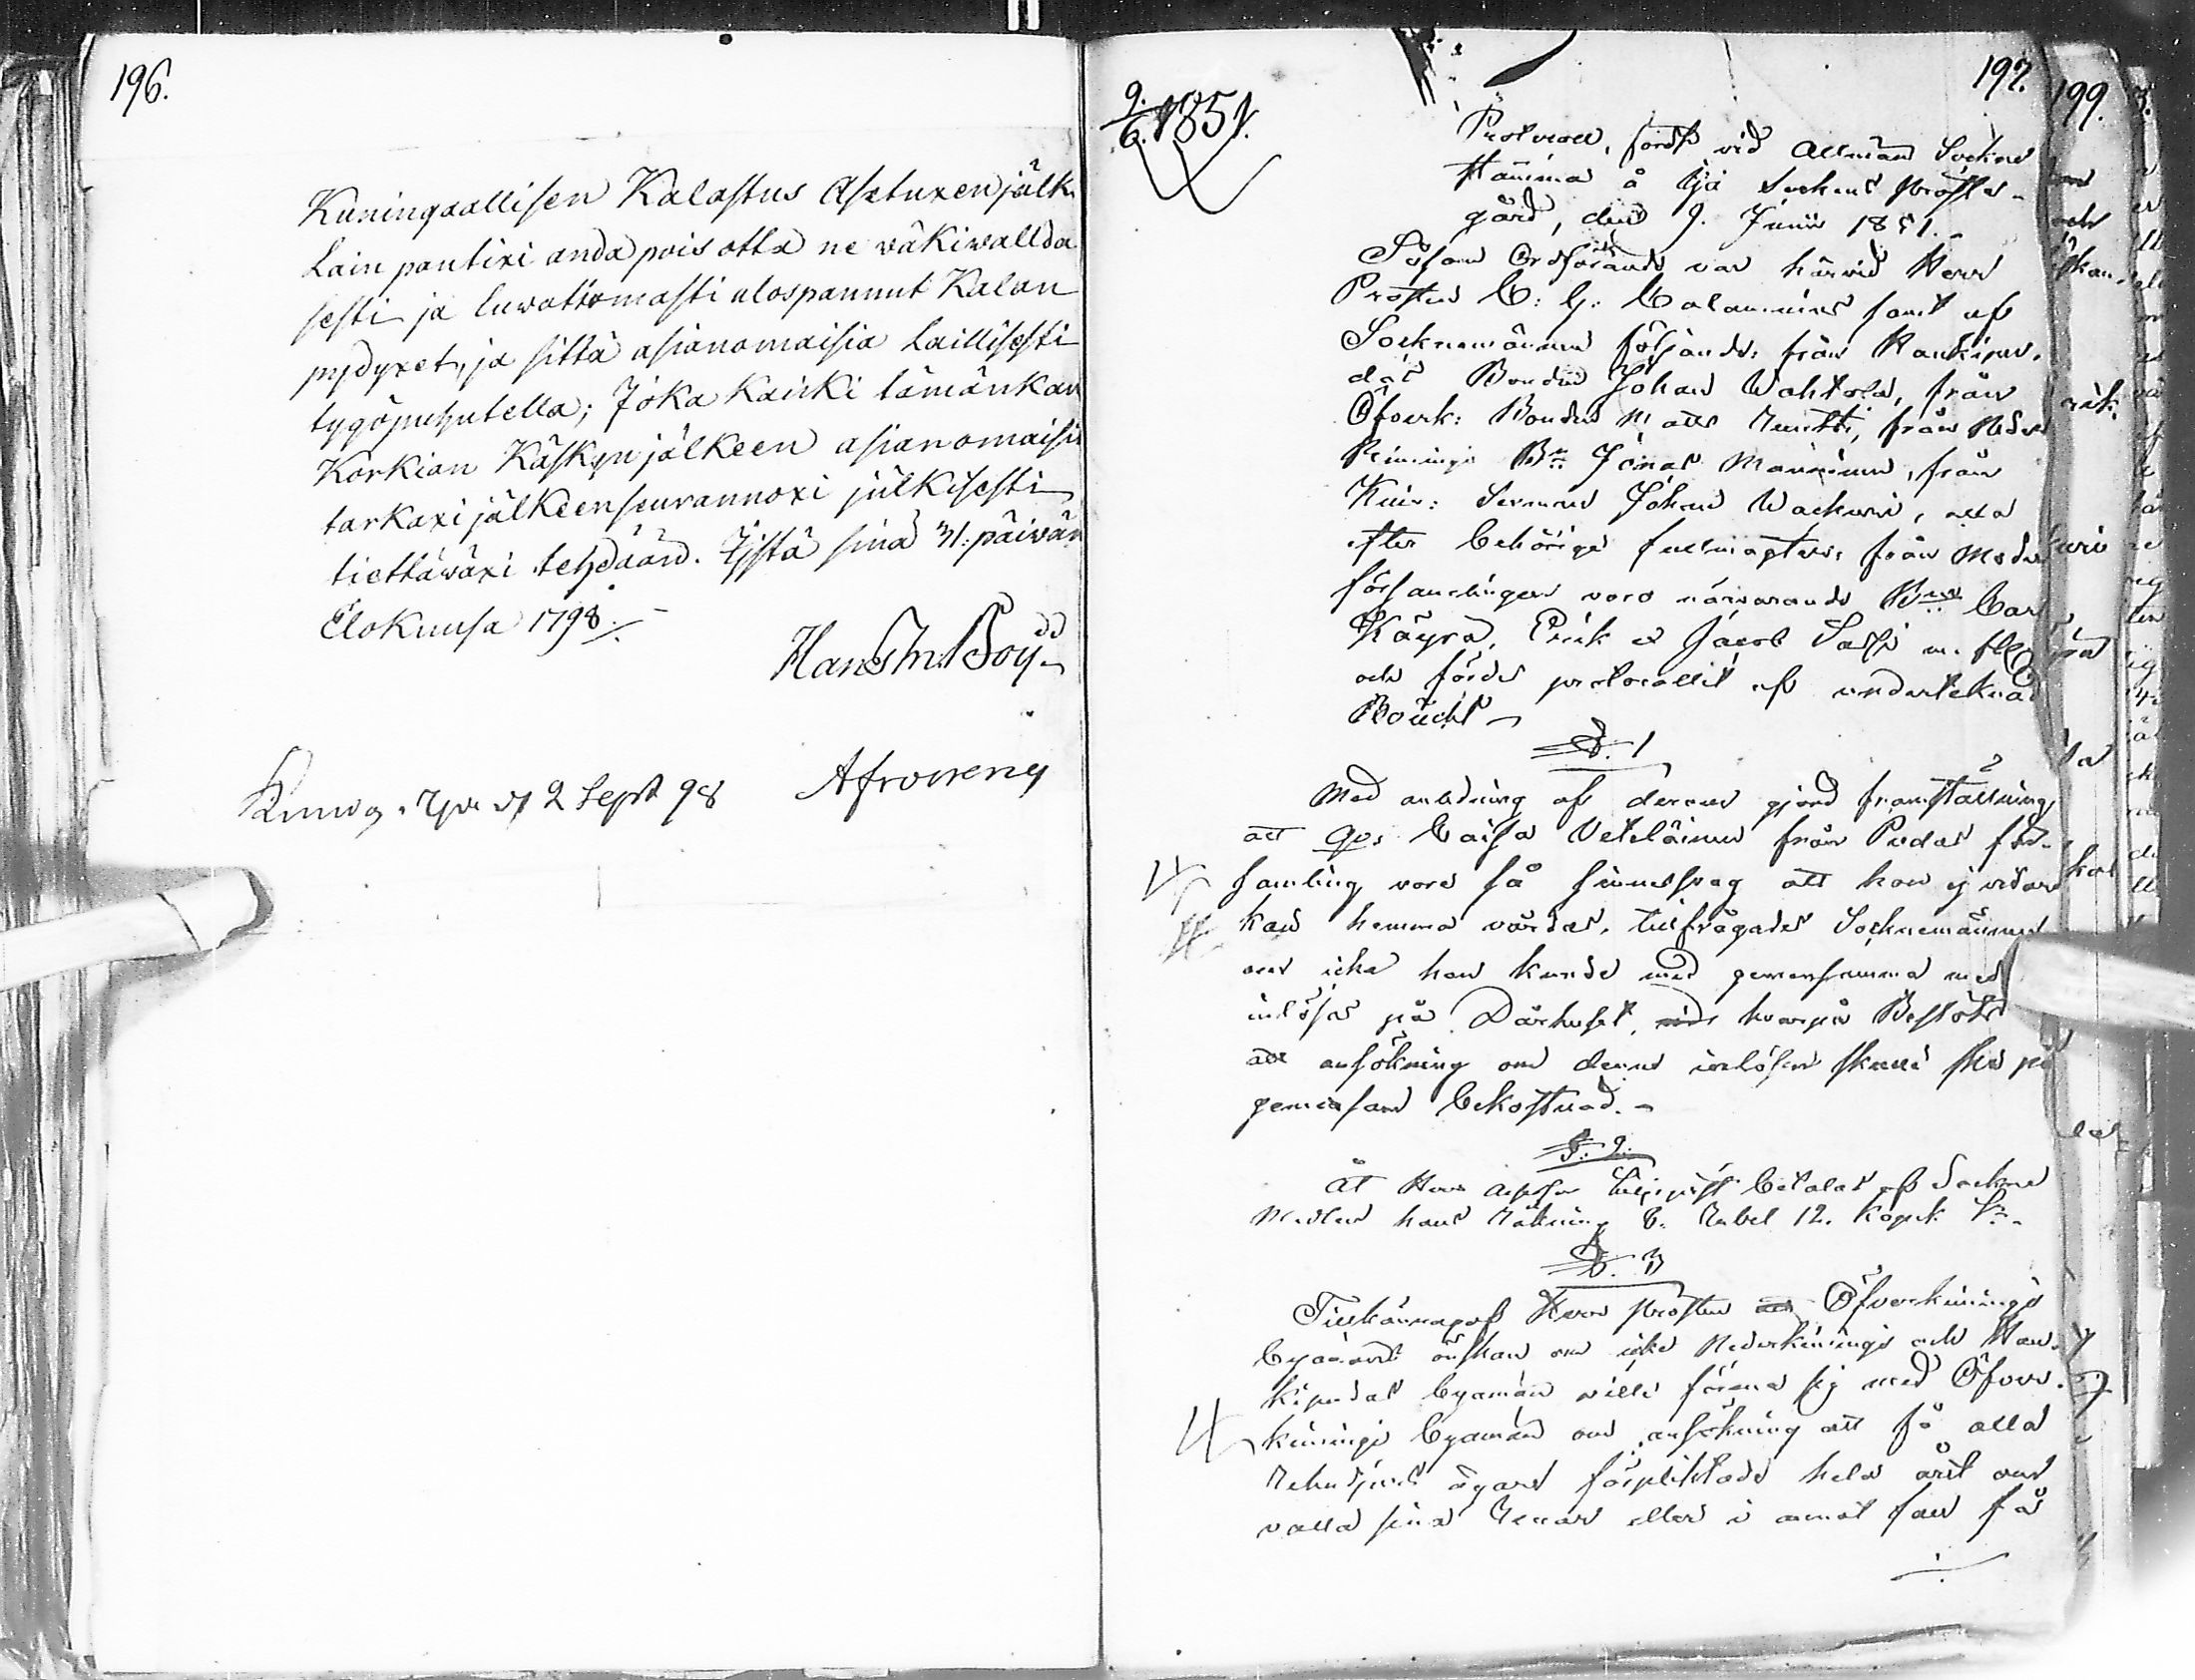 196.
Kuningaallisen Kalastus Asetuxen jälk
Lain pantixi anda pois otta ne wäkiwallda
sesti ja luwattomasti ulospannut Kalan
pydyxet, ja sittä asianomaisia Laillisesti
tygöpuhutella; Joka Kaicki tämänkau
Korkian Käskyn jälkeen asianomaisil
tarkaxi jälkeenseurannoxi julkisesti
tiettäwäxi tehdään. Ijstä sinä 31: päiwän
Elokuusa 1798./.
Hans Boij
d 2 Sept 98
197.
9./6. 1851.
Protocoll, fördt vid Allmän Sockne
stämma å Ijo Sockens Prosts-
gård, den 9. Junii 1851.
Såsom Ordförande var härvid Herr
Prosten C: G: Calamnius samt af
Socknemännen följande: från Haukipu-
das Bonden Johan Wahtola, från
Öfverk: Bonden Matts från Neder
Kiminge Bn Jonas Manninen, från
Kuiv: Johan alla
efter behörige fullmagter; från Moder
församlingen voro närvarande Bönd Carl
Käyrä, Erik & Jacob m. fl.
och fördes protocollet af undertecknad
§. 1
Med anledning af derom gjord framställning
att Caisa Veteläinen från Pudas för-
samling vore så sinnessvag att hon ej vidare
kan hemma vårdas, tillfrågades Socknemännen
om icke hon kunde med gemensamma med
inlösas på Dårhuset, hvarpå Beslöts
att ansökning om dennes inlösen skulle ske på
gemensam bekostnad.-
§. 2.
Åt Herr betalas af Sockne
Medlen hans Räkning 6. Rubel 12. Kopek Sr.
§. 3
Tillkännagaf Herr Prosten Öfverkiminge
byamäns önskan om icke Nederkiminge och Hau-
kipudas byamän ville förena sig med Öfver-
kiminge byamän om ansökning att få alla
Rehndjurs ägare förpliktade hela året om
valla sina Renar eller i annat fall få
199.